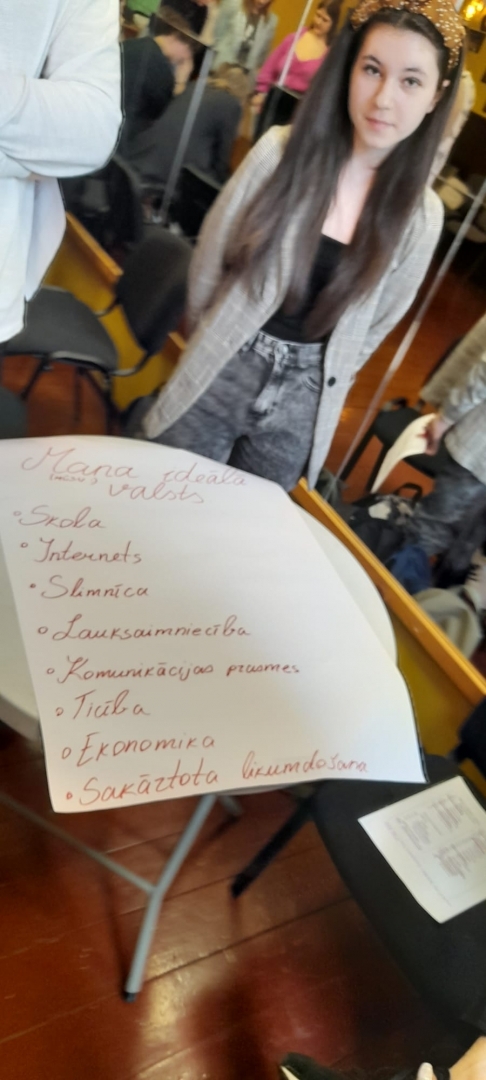 Mana ideāla
(mūsu) valsts
◦ Skola
◦ Internets
◦ Slimnīca
◦ Lauksaimniecība
◦ Komunikācijas prasmes
◦ Ticība
◦ Ekonomika
◦ Sakāztota likumdošana